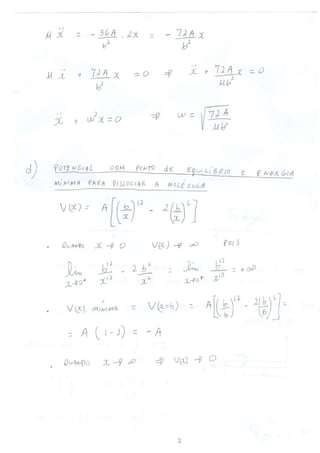 μ ẍ = - 36A/b² . 2x = - 72A/b² x
μ ẍ + 72A/b² x = 0 ⇒ ẍ + 72A/μb² x = 0
ẍ + ω²x = 0 ⇒ ω = √(72A/μb²)
d) POTENCIAL COM PONTO de EQUILÍBRIO E ENERGIA
MÍNIMA PARA DISSOCIAR A MOLÉCULA
V(x) = A[(b/x)¹² - 2(b/x)⁶]
• QUANDO x → 0 V(x) → ∞ POIS
lim x→0⁺ b¹²/x¹² - 2 b⁶/x⁶ = lim x→0⁺ b¹²/x¹² = +∞
• V(x) mínimo = V(x=b) = A[(b/b)¹² - 2(b/b)⁶] =
= A (1-2) = -A
• QUANDO x → ∞ ⇒ V(x) → 0
2